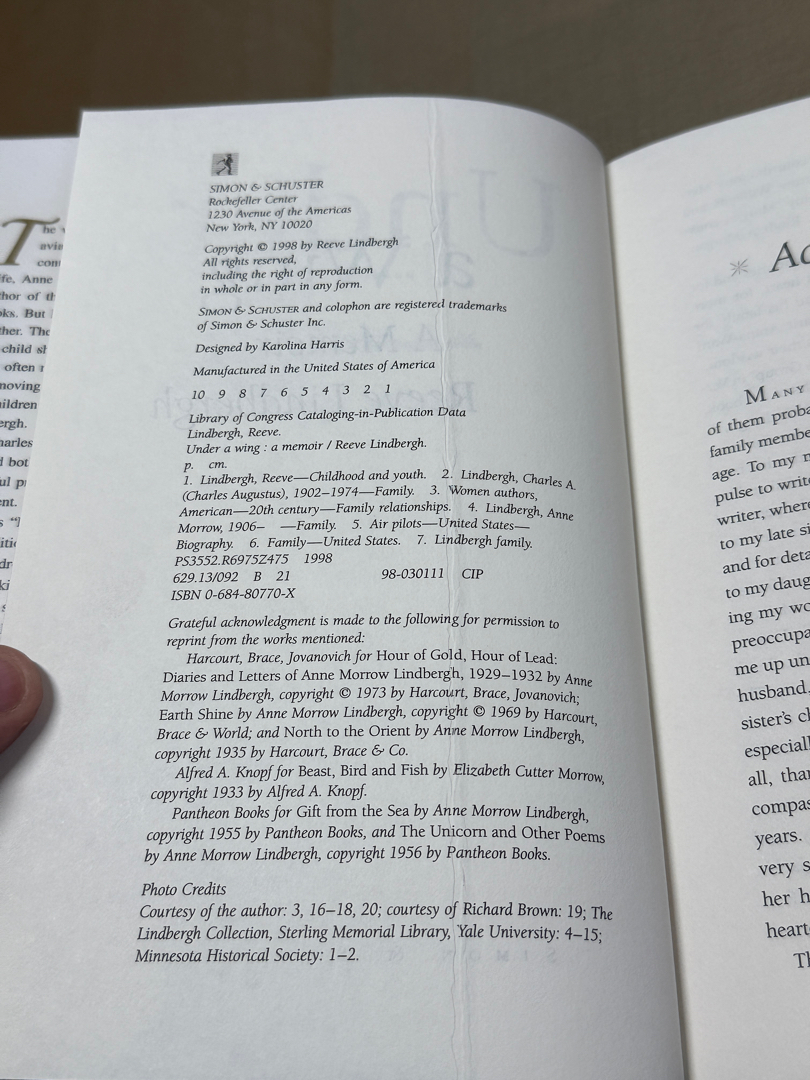 T
he
avia
com
ife, Anne
thor of th
ks. But
ther. The
child sh
often
moving
ildren
ergh.
harles
bot
ent.
SIMON & SCHUSTER
Rockefeller Center
1230 Avenue of the Americas
New York, NY 10020
Copyright © 1998 by Reeve Lindbergh
All rights reserved,
including the right of reproduction
in whole or in part in any form.
SIMON & SCHUSTER and colophon are registered trademarks
of Simon & Schuster Inc.
Designed by Karolina Harris
Manufactured in the United States of America
10 9 8 7 6 5 4 3 2 1
Library of Congress Cataloging-in-Publication Data
Lindbergh, Reeve.
Under a wing : a memoir / Reeve Lindbergh.
p. cm.
1. Lindbergh, Reeve—Childhood and youth. 2. Lindbergh, Charles A.
(Charles Augustus), 1902–1974—Family. 3. Women authors,
American—20th century—Family relationships. 4. Lindbergh, Anne
Morrow, 1906– —Family. 5. Air pilots—United States—
Biography. 6. Family—United States. 7. Lindbergh family.
PS3552.R6975Z475 1998
629.13/092 B 21 98-030111 CIP
ISBN 0-684-80770-X
Grateful acknowledgment is made to the following for permission to
reprint from the works mentioned:
Harcourt, Brace, Jovanovich for Hour of Gold, Hour of Lead:
Diaries and Letters of Anne Morrow Lindbergh, 1929–1932 by Anne
Morrow Lindbergh, copyright © 1973 by Harcourt, Brace, Jovanovich;
Earth Shine by Anne Morrow Lindbergh, copyright © 1969 by Harcourt,
Brace & World; and North to the Orient by Anne Morrow Lindbergh,
copyright 1935 by Harcourt, Brace & Co.
Alfred A. Knopf for Beast, Bird and Fish by Elizabeth Cutter Morrow,
copyright 1933 by Alfred A. Knopf.
Pantheon Books for Gift from the Sea by Anne Morrow Lindbergh,
copyright 1955 by Pantheon Books, and The Unicorn and Other Poems
by Anne Morrow Lindbergh, copyright 1956 by Pantheon Books.
Photo Credits
Courtesy of the author: 3, 16–18, 20; courtesy of Richard Brown: 19; The
Lindbergh Collection, Sterling Memorial Library, Yale University: 4–15;
Minnesota Historical Society: 1–2.
Ac
MANY
of them proba
family membe
age. To my
pulse to write
writer, where
to my late si
and for deta
to my daug
ing my wo
preoccupa
me up un
husband,
sister's ch
especiall
all, tha
compas
years.
very s
her h
heart
Th